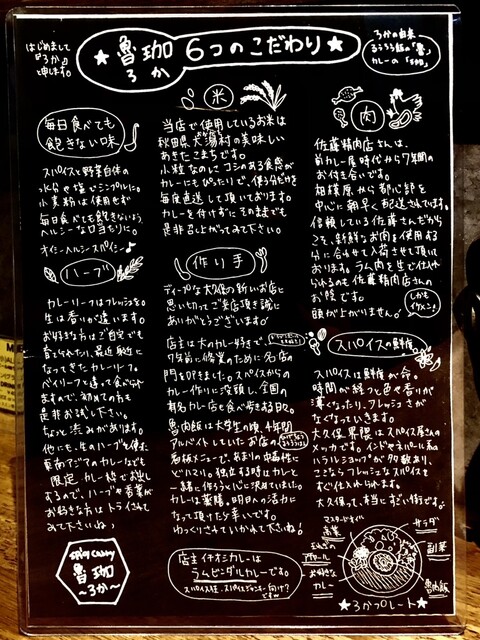 はじめまして
「ろか」
と申します。
★魯珈 6つのこだわり★
ろか
ろかの由来
るうろう飯の「魯」
カレーの「珈」
毎日食べても
飽きない味
スパイスと野菜自体の
水分や塩でシンプルに。
小麦粉は使用せず
毎日食べても飽きないよう、
ヘルシーな口当たりに。
オイシーヘルシースパイシー♪
ハーブ
カレーリーフはフレッシュを。
生は香りが違います。
お好きな方はご自宅でも
育てられたり、最近身近に
なってきたカレーリーフ。
ベイリーフと違って食べられ
ますので、初めての方も
是非お試し下さい。
ちょっと渋みがあります。
他にも、生のハーブを使た
東南アジアのカレーなども
限定カレー枠でお出し
するので、ハーブや香菜が
お好きな方はトライされて
みて下さいね♪
SPICY CURRY
魯珈
～ろか～
米
当店で使用しているお米は
秋田県大潟村の美味しい
あきたこまちです。
小粒なのにコシのある食感が
カレーにもぴったりで、使う分だけを
毎度直送して頂いております。
カレーを付けずにそのままでも
是非召し上がってみて下さい。
作り手
ディープな大久保の新しいお店に
思い切ってご来店頂き誠に
ありがとうございます!
店主は大のカレー好きで、
7年前に修業のために名店の
門を叩きました。スパイスからの
カレー作りに没頭し、全国の
有名カレー店を食べ歩きる日々。
魯肉飯は大学生の頃、4年間
アルバイトしていたお店の
看板メニューで、あまりの中毒性に
どハマり。独立する時はカレーと
一緒に作ろうと心に決めていました。
カレーは薬膳。明日への活力に
なって頂けたら幸いです。
ゆっくりされていかれて下さいね!
店主イチオシカレーは
ラムビンダルカレーです。
スパイス狂、スパイスジャンキー向け?
ですw
肉
佐藤精肉店さんは、
前カレー屋時代から7年間の
お付き合いです。
相模原から都心部を
中心に朝早く配送されてます。
信頼している佐藤さんだから
こそ、新鮮なお肉を使用する
分に合わせて入荷させて頂いて
おります。ラム肉を生で仕入れ
られるのも佐藤精肉店さんの
お陰です。
頭が上がりません。
しかも
イケメン!
スパイスの鮮度
スパイスは鮮度が命。
時間が経つと色や香りが
薄くなったり、フレッシュさが
なくなっていきます。
大久保界隈はスパイス屋さんの
メッカです。インドやネパール系の
ハラルショップが多数あり、
ここならフレッシュなスパイスを
すぐ仕入れられます。
大久保って、本当にすごい街です。
マスタードオイル
高菜
サラダ
玉ねぎの
アチャール
副菜
お好きな
カレー
魯肉飯
★ろかプレート★